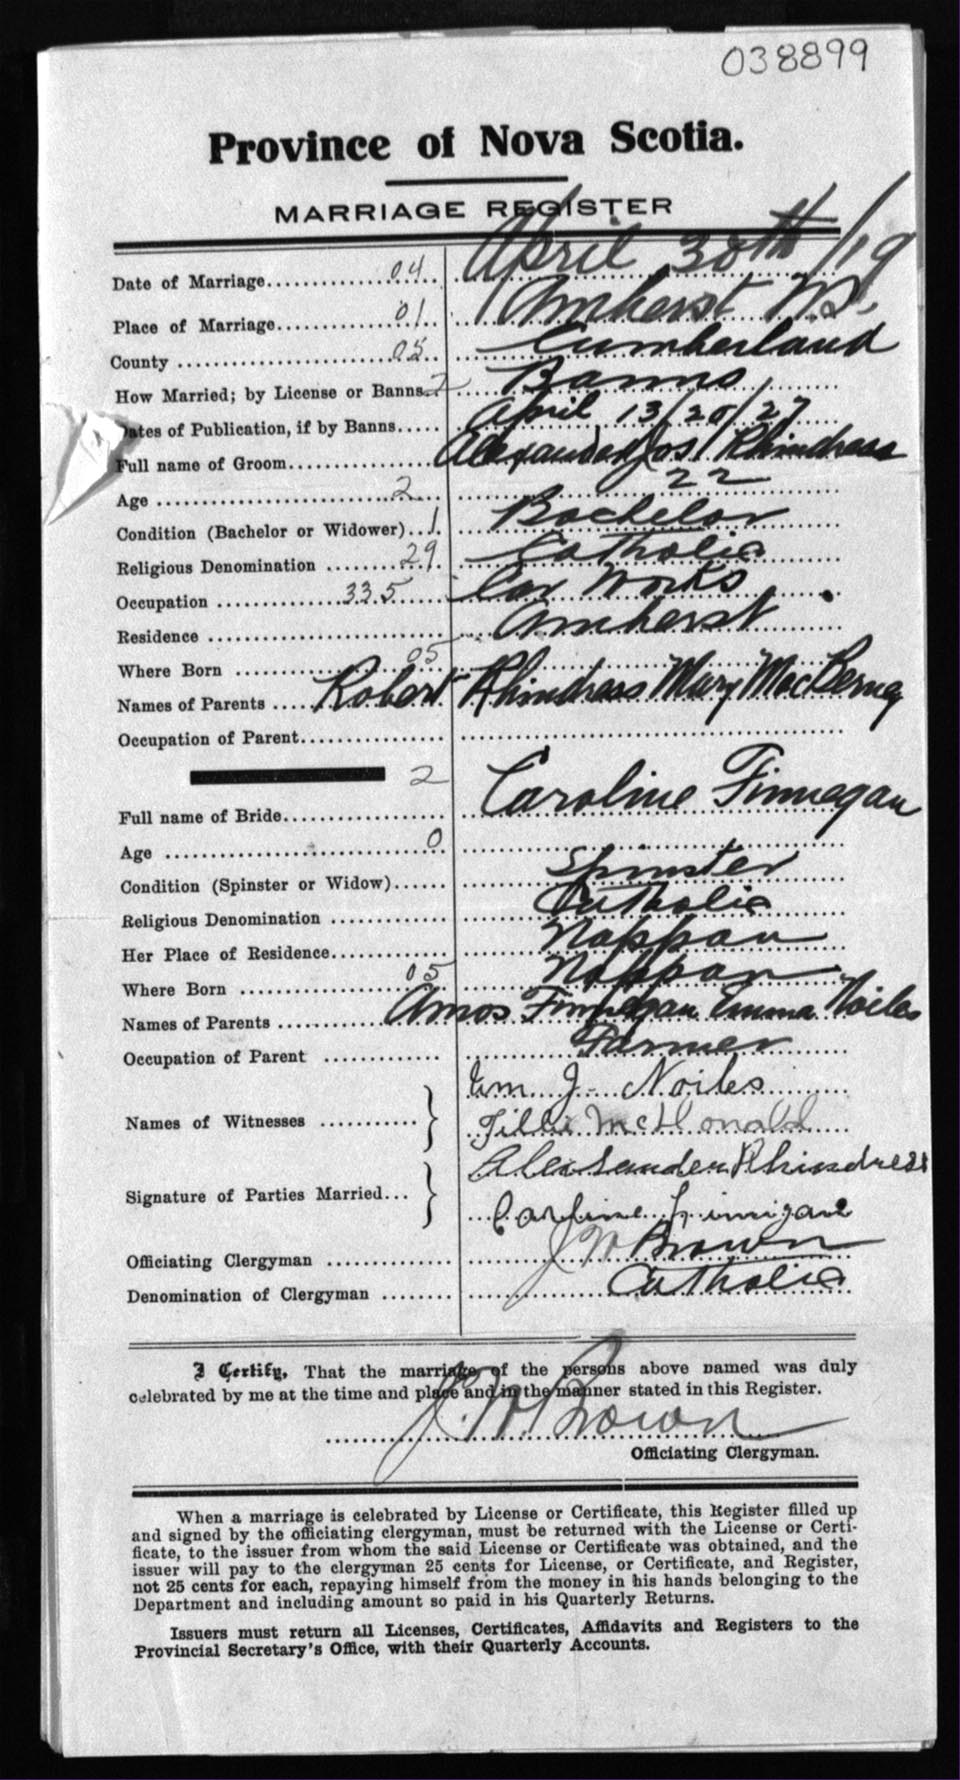 038899
Province of Nova Scotia.
MARRIAGE REGISTER
Date of Marriage 04 April 30th /19
Place of Marriage 01 Amherst N.S.
County 05 Cumberland
How Married; by License or Banns 2 Banns
Dates of Publication, if by Banns April 13/20/27
Full name of Groom Alexander Jos Rhindress
Age 2 22
Condition (Bachelor or Widower) 1 Bachelor
Religious Denomination 29 Catholic
Occupation 335 Car Works
Residence Amherst
Where Born 05
Names of Parents Robert Rhindress Mary MacBerney
Occupation of Parent
2
Full name of Bride Caroline Finnegan
Age 0
Condition (Spinster or Widow) Spinster
Religious Denomination Catholic
Her Place of Residence Nappan
Where Born 05 Nappan
Names of Parents Amos Finnegan Emma Noiles
Occupation of Parent Farmer
Names of Witnesses Wm J. Noiles
Tillie McDonald
Signature of Parties Married Alexsander Rhindress
Carline Finnigan
Officiating Clergyman J W Brown
Denomination of Clergyman Catholic
I Certify, That the marriage of the persons above named was duly
celebrated by me at the time and place and in the manner stated in this Register.
J. W. Brown
Officiating Clergyman.
When a marriage is celebrated by License or Certificate, this Register filled up
and signed by the officiating clergyman, must be returned with the License or Certi-
ficate, to the issuer from whom the said License or Certificate was obtained, and the
issuer will pay to the clergyman 25 cents for License, or Certificate, and Register,
not 25 cents for each, repaying himself from the money in his hands belonging to the
Department and including amount so paid in his Quarterly Returns.
Issuers must return all Licenses, Certificates, Affidavits and Registers to the
Provincial Secretary's Office, with their Quarterly Accounts.